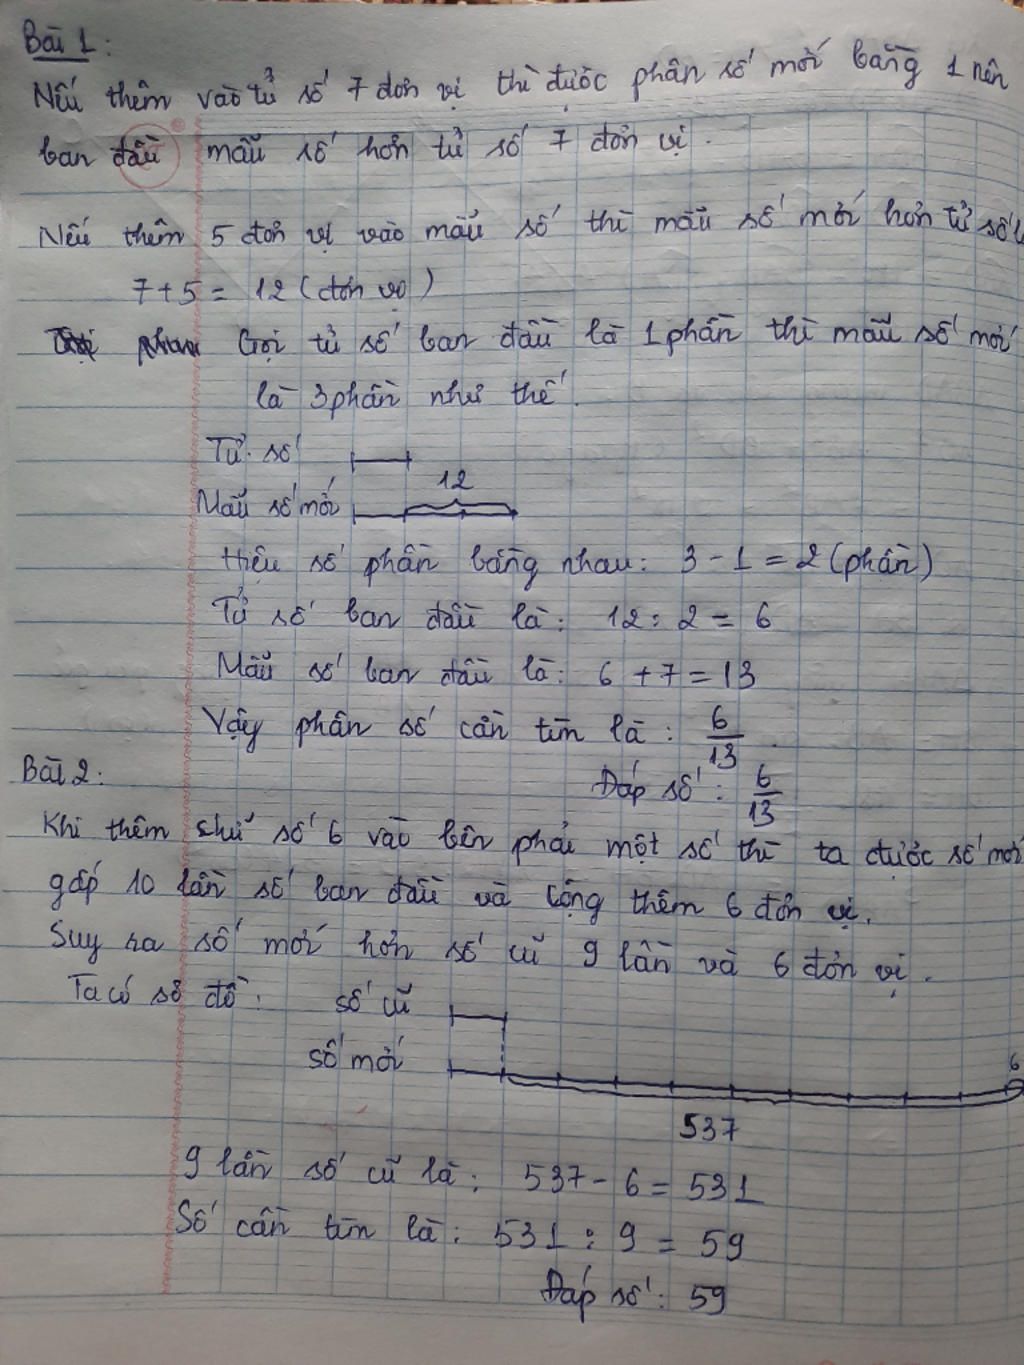 Bài 1:
Nếu thêm vào tử số 7 đơn vị thì được phân số mới bằng 1 nên
ban đầu mẫu số hơn tử số 7 đơn vị.
Nếu thêm 5 đơn vị vào mẫu số thì mẫu số mới hơn tử số
7 + 5 = 12 (đơn vị)
Gọi tử số ban đầu là 1 phần thì mẫu số mới
là 3 phần như thế.
Tử số
12
Mẫu số mới
Hiệu số phần bằng nhau: 3 - 1 = 2 (phần)
Tử số ban đầu là: 12 : 2 = 6
Mẫu số ban đầu là: 6 + 7 = 13
Vậy phân số cần tìm là: 6/13.
Đáp số: 6/13
Bài 2:
Khi thêm chữ số 6 vào bên phải một số thì ta được số mới
gấp 10 lần số ban đầu và cộng thêm 6 đơn vị.
Suy ra số mới hơn số cũ 9 lần và 6 đơn vị.
Ta có sơ đồ: số cũ
số mới 6
537
9 lần số cũ là: 537 - 6 = 531
Số cần tìm là: 531 : 9 = 59
Đáp số: 59